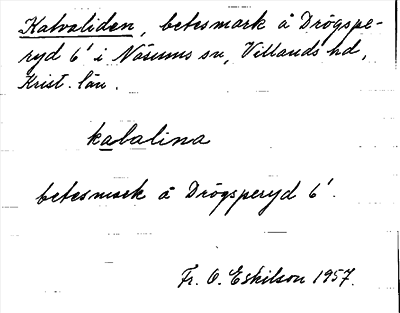 Kalvaliden, betesmark å Drögspe-
ryd 6' i Näsums sn, Villands hd,
Krist. län.
kabalina
betesmark å Drögsperyd 6'.
Fr. O. Eskilson 1957.